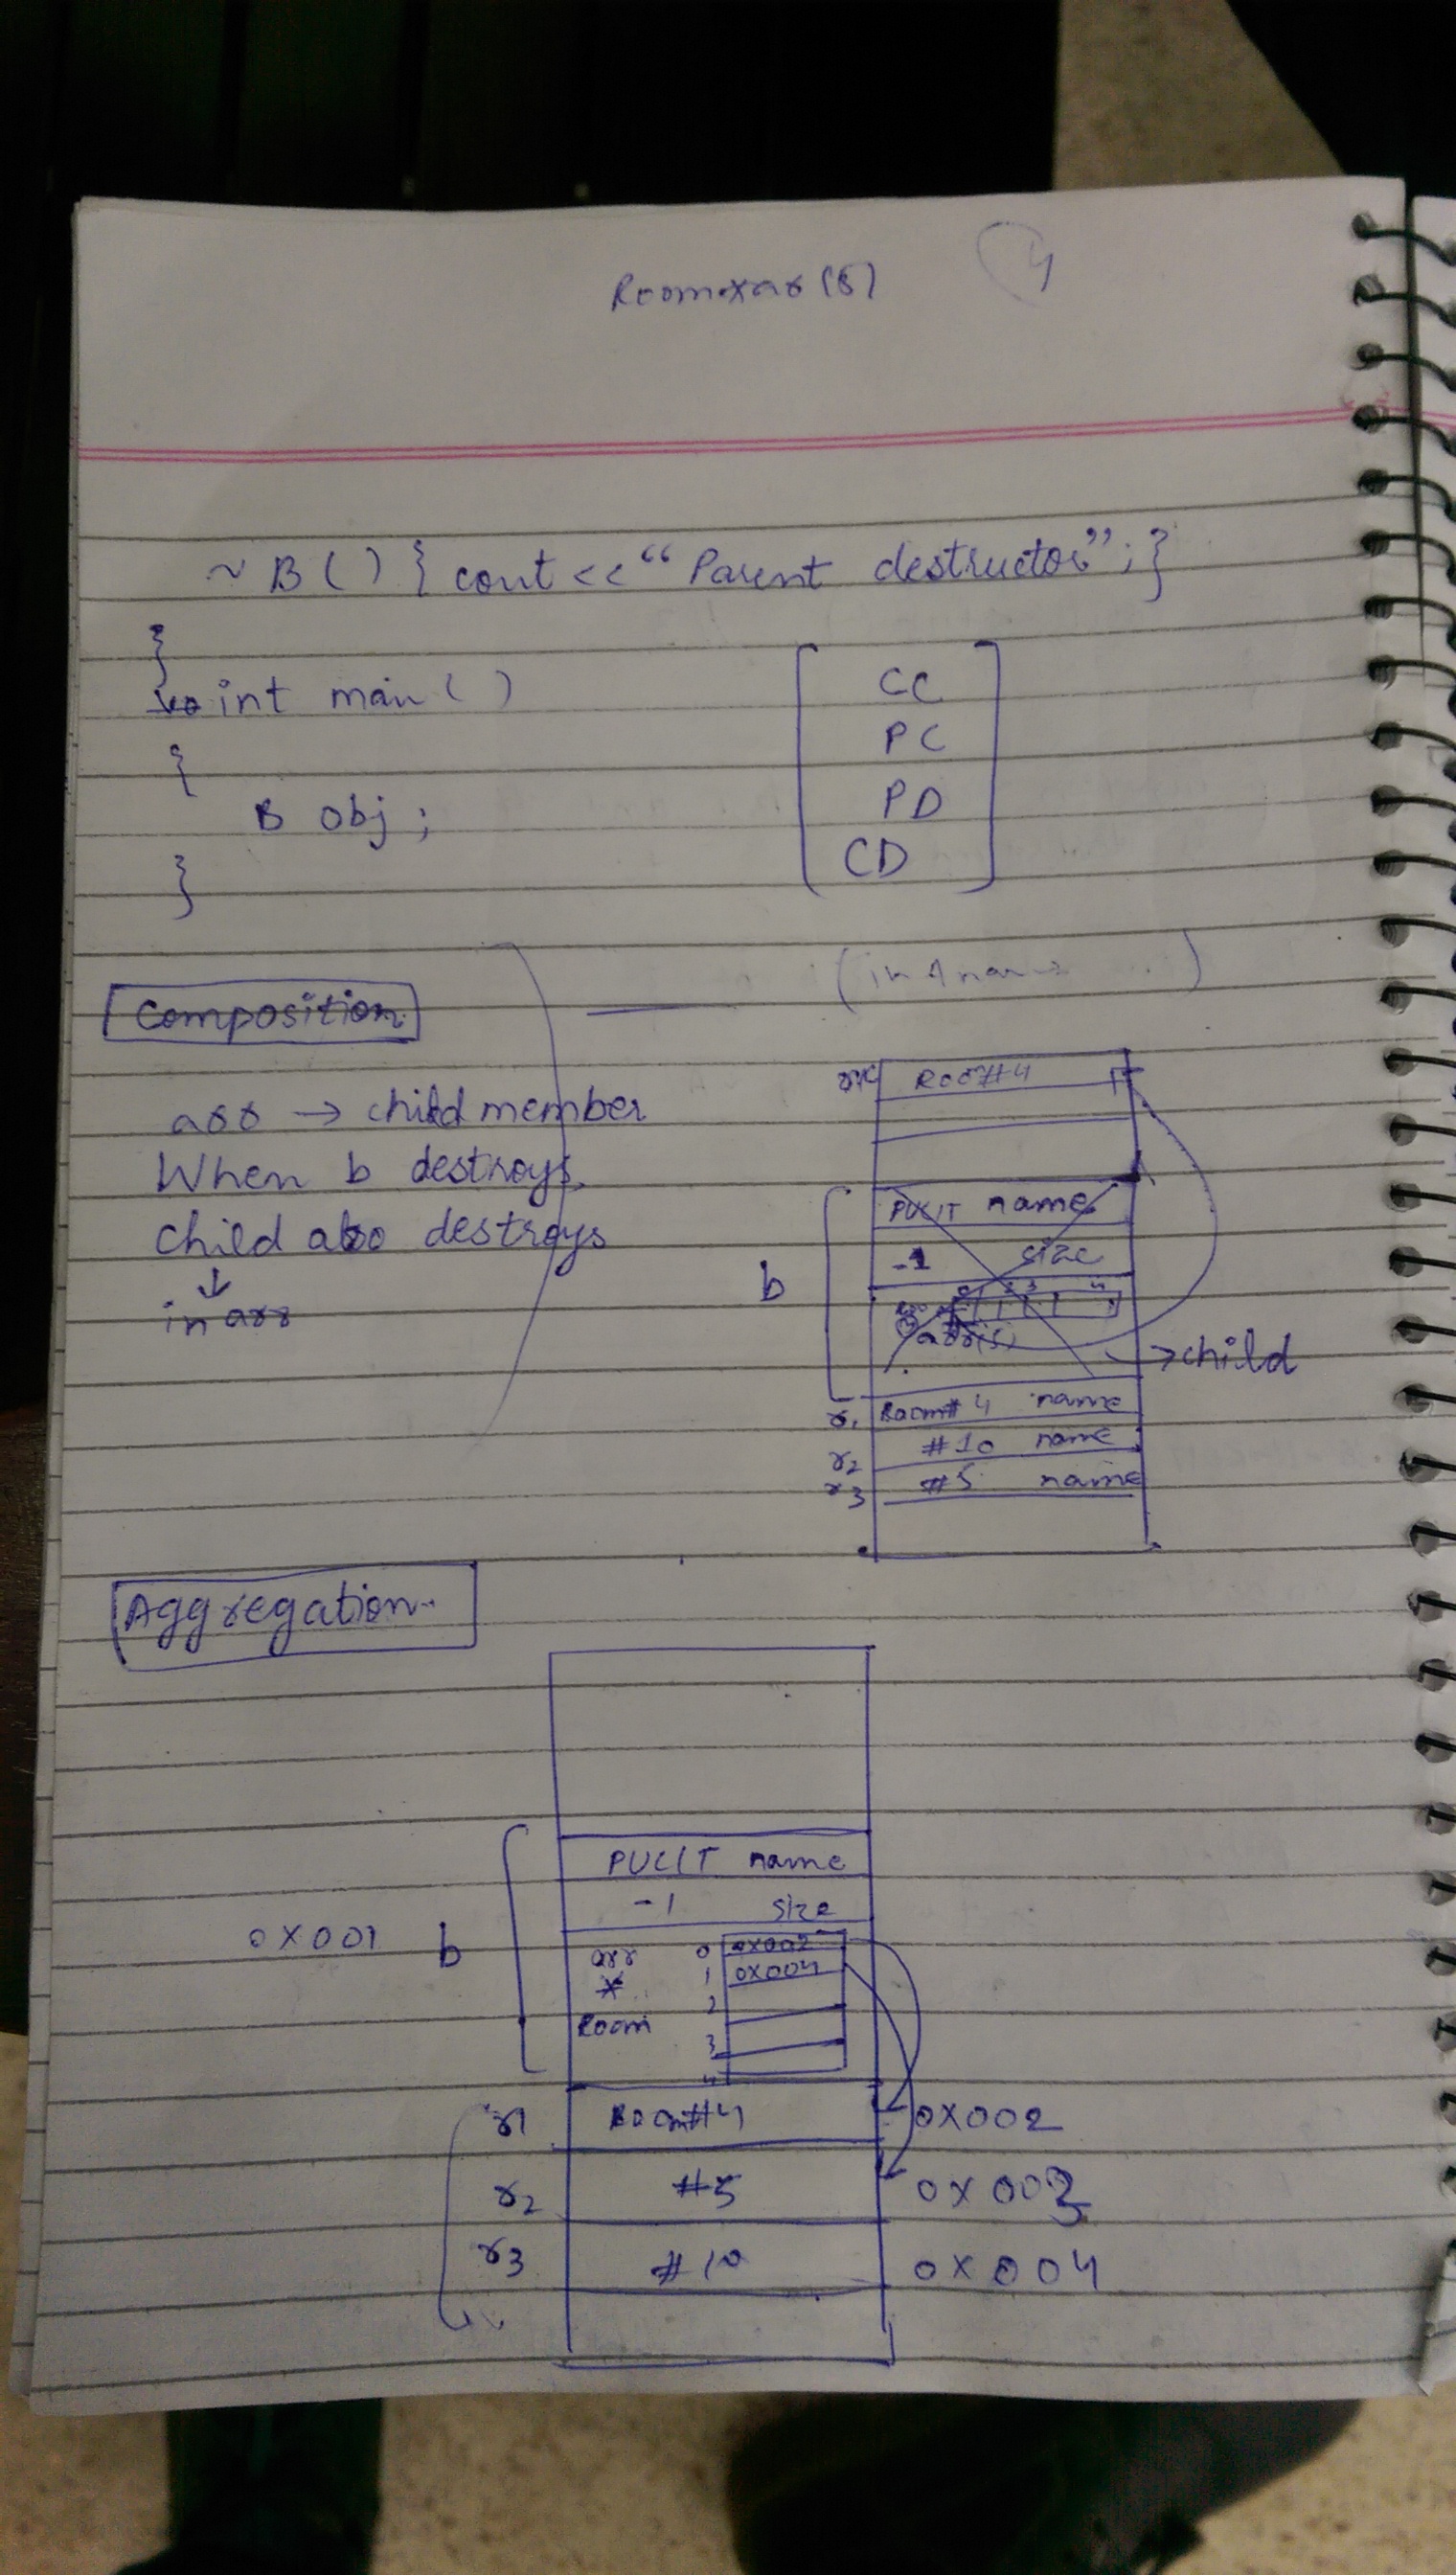 4
~ B ( ) { cout << “ Parent destructor”; }
}
int main ( )
{
B obj ;
}
CC
PC
PD
CD
Composition
arr → child member
When b destroys,
child also destroys
↓
in arr
PUCIT name
-1 size
b
arr(5)
→ child
r1 Room# 4 name
r2 #10 name
r3 #5 name
Aggregation
PUCIT name
-1 size
0x001 b
arr 0 0x002
* 1 0x004
2
Room
3
4
r1 Room#4 0x002
r2 #5 0x003
r3 #10 0x004